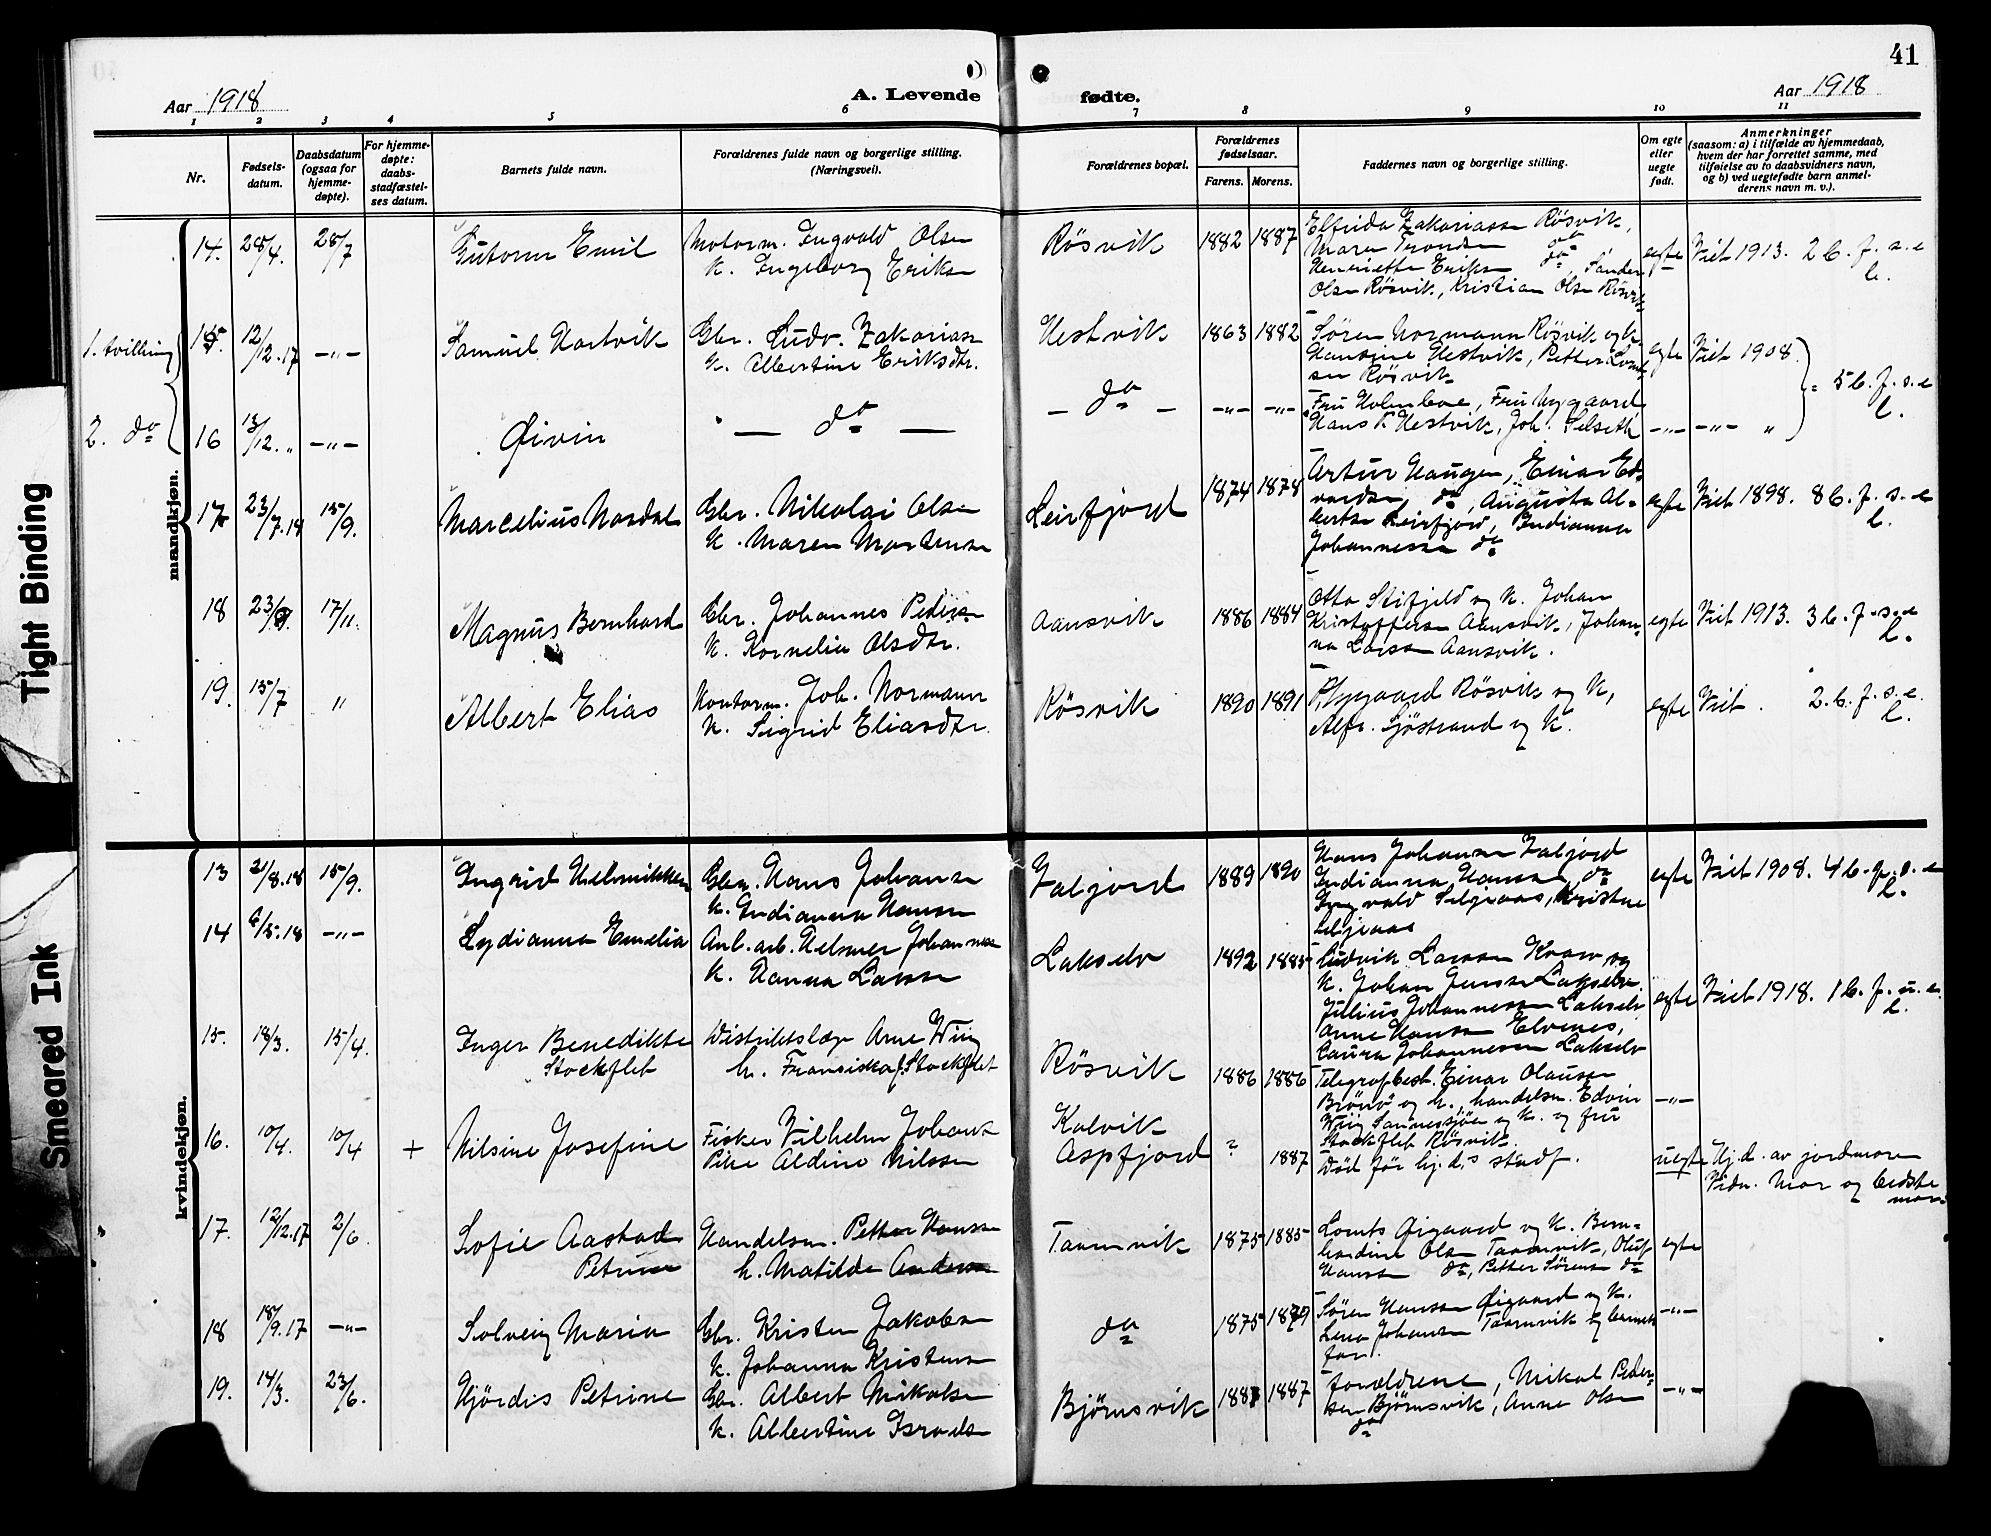 41
Aar 1918
A. Levende
fødte.
Aar 1918
1 2 3 4 5 6 7 8 9 10 11
Nr.
Fødsels-
datum.
Daabsdatum
(ogsaa for
hjemme-
døpte).
For hjemme-
døpte:
daabs-
stadfæstel-
ses datum.
Barnets fulde navn.
Forældrenes fulde navn og borgerlige stilling.
(Næringsvei).
Forældrenes bopæl.
Forældrenes
fødselsaar.
Farens. Morens.
Faddernes navn og borgerlige stilling.
Om egte
eller
uegte
født.
Anmerkninger
(saasom: a) i tilfælde av hjemmedaab,
hvem der har forrettet samme, med
tilføielse av to daabsvidners navn,
og b) ved uegtefødte barn anmel-
derens navn m. v.).
mandkjøn.
14. 28/4. 28/7
Gutorm Emil
Motorm. Ingvald Olsen
K. Ingeborg Eriksen
Rösvik 1882 1887
Elfrida Zakariassen Rösvik,
Maren Tronsen do
Henriette Eriksen do, Sander
Olsen Rösvik, Kristian Olsen Rösvik
egte
Viet 1913. 2 b. f. s. e
l.
1. tvilling
15. 12/12.17 -"-
Samuel Hartvik
Gbr. Ludv. Zakariasen
K. Albertine Eriksdtr.
Hestvik 1863 1882
Sören Normann Rösvik og k.
Hansine Hestvik, Petter
sen Rösvik
egte
Viet 1908
= 5 b. f. s. e
l.
2. do
16 13/12. " -"-
Øivin
- do -
- do - -"- -"-
Fru Holmboe, Fru Nygaard
Hans K Hestvik, Joh. Selseth
-"- -"- "
17 23/7.18 15/9.
Marcelius Nordal
Gbr. Nikolai Olsen
K. Maren Mortensen
Leirfjord 1874 1878
Artur Haugen, Einar Ed-
vardsen do, Augusta Al-
bertsen Leirfjord, Indianna
Johannessen do
egte
Viet 1898. 8 b. f. s. e
l.
18 23/9. 17/11.
Magnus Bernhard
Gbr. Johannes Pedersen
K. Kornelie Olsdtr.
Aansvik 1886 1884
Otto Stifjeld og K. Johan
Kristoffersen Aansvik, Johan-
na Larsen Aansvik.
egte
Viet 1913. 3 b. f. s. e
l.
19. 15/7 "
Albert Elias
Kontorm. Joh. Normann
K. Sigrid Eliasdtr.
Rösvik 1890 1891
P. Nygaard Rösvik og K,
Alfr. Sjöstrand og K.
egte
Viet . 2. b. f. s. e.
l.
kvindekjøn.
13 21/8.18 15/9.
Ingrid Helmikken
Gbr. Hans Johansen
K. Indianna Hansen
Valjord 1889 1890
Hans Johansen Valjord
Indianna Hansen do
Ingvald Seljeaas, Kristine
Seljeaas
egte
Viet 1908. 4 b. f. s. e
l.
14 6/5.18 -"-
Lydianna Emelia
Anl. arb. Helmer Johannessen
K. Hanna Larsen
Lakselv 1892 1885
Ludvik Larsen Kvarv og
K. Johan Jensen Lakselv
Julius Johannessen Lakselv
Anne Hansen Elvenes,
Laura Johannessen Lakselv
egte
Viet 1918. 1 b. f. u. e.
l.
15. 18/3. 15/4.
Inger Benedikte
Stockflet
Distriktslæge Arne Wiig
h. Fransiska f. Stockflet
Rösvik 1886 1886
Telegrafbest. Einar Olausen
Brönö og h. handelsm. Edvin
Wiig Sannessjöen og k. og fru
Stockflet Rösvik.
-"-
16. 10/4. 10/4 +
Nilsine Josefine
Fisker Vilhelm Johansen
Pike Aldine Nilssen
Kalvik
Aspfjord ? 1887
Död för hj. d.s stadf.
uegte
Hj. d. av jordmoren
Vidn. Mor og bedste
mor
17. 12/12.17 2/6.
Sofie Aastad
Petrine
Handelsm. Petter Hansen
h. Matilde Andersen
Taarnvik 1875 1885
Lorents Øigaard og K. Bern-
hardine Olsen Taarnvik, Oluf
Hansen do, Petter Sörensen do
egte
18 18/9.17 -"-
Solveig Maria
Gbr. Kristen Jakobsen
K. Johanna Kristensen
do 1875 1879
Sören Hansen Øigaard og K.
Lena Johansen Taarnvik og barnets
far.
-"-
19. 14/3. 23/6.
Hjördis Petrine
Gbr. Albert Mikalsen
K. Albertine Israelsen
Björnsvik 1887 1887
Forældrene, Mikal Peder-
sen Björnsvik, Anne Olsen
do
-"-
Tight Binding
Smeared Ink